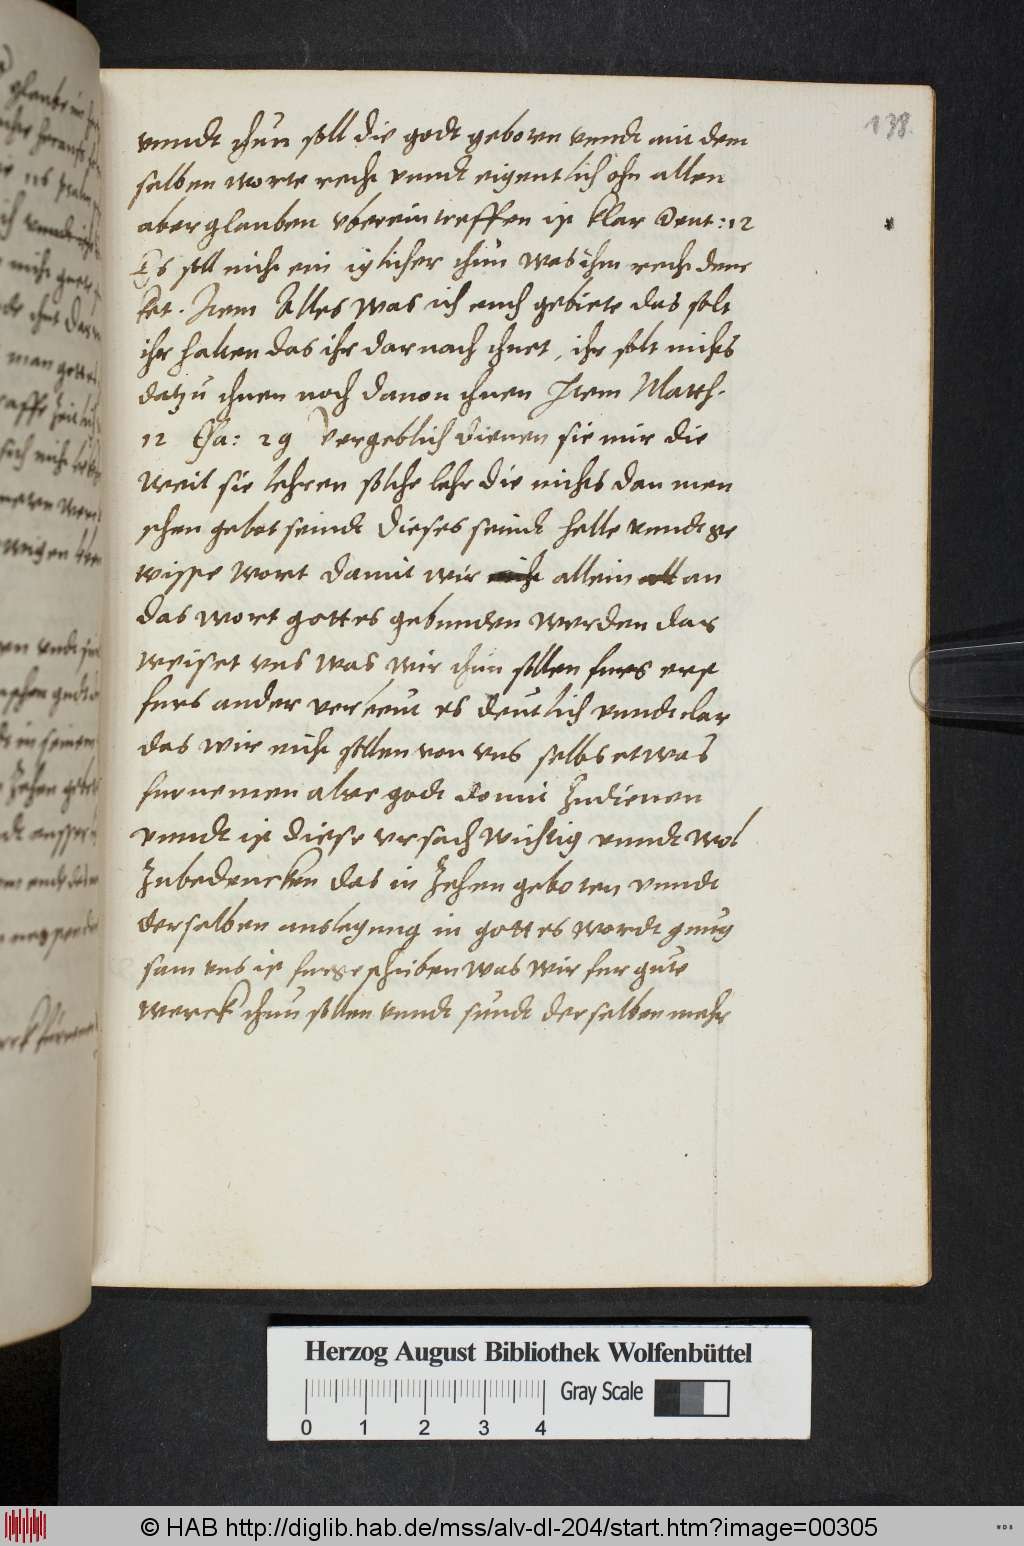 138.
vnndt thun soll die godt geboten vnndt mit dem
selben worte recht vnndt eigentlich ohn allen
aberglauben vbereintreffen ist klar Deut: 12
Es soll nicht ein iglicher thun was ihm recht dunc
ket. Item Alles was ich euch gebiete das solt
ihr halten das ihr darnach thuet, ihr solt nichts
datzu thuen noch dauon thuen Item Matth.
12 Esa: 29 Vergeblich dienen sie mir die
weil sie lehren solche lehr die nichts dan men
schen gebot seindt Dieses seindt helle vnndt ge
wisse wort damit wir allein an
das wort gottes gebunden werden das
weiset vns was wir thun sollen furs erst
furs ander verbeut es deutlich vnndt clar
das wir nicht sollen von vns selbs etwas
furnemen alse godt domit zudienen
vnndt ist diese vrsach wichtig vnndt wol
zubedencken das in zehen geboten vnndt
derselben auslegung in gottes wordt gnug
sam vns ist furgeschriben was wir fur gute
werck thun sollen vnndt sindt derselben mehr
Herzog August Bibliothek Wolfenbüttel
Gray Scale
0 1 2 3 4
© HAB http://diglib.hab.de/mss/alv-dl-204/start.htm?image=00305